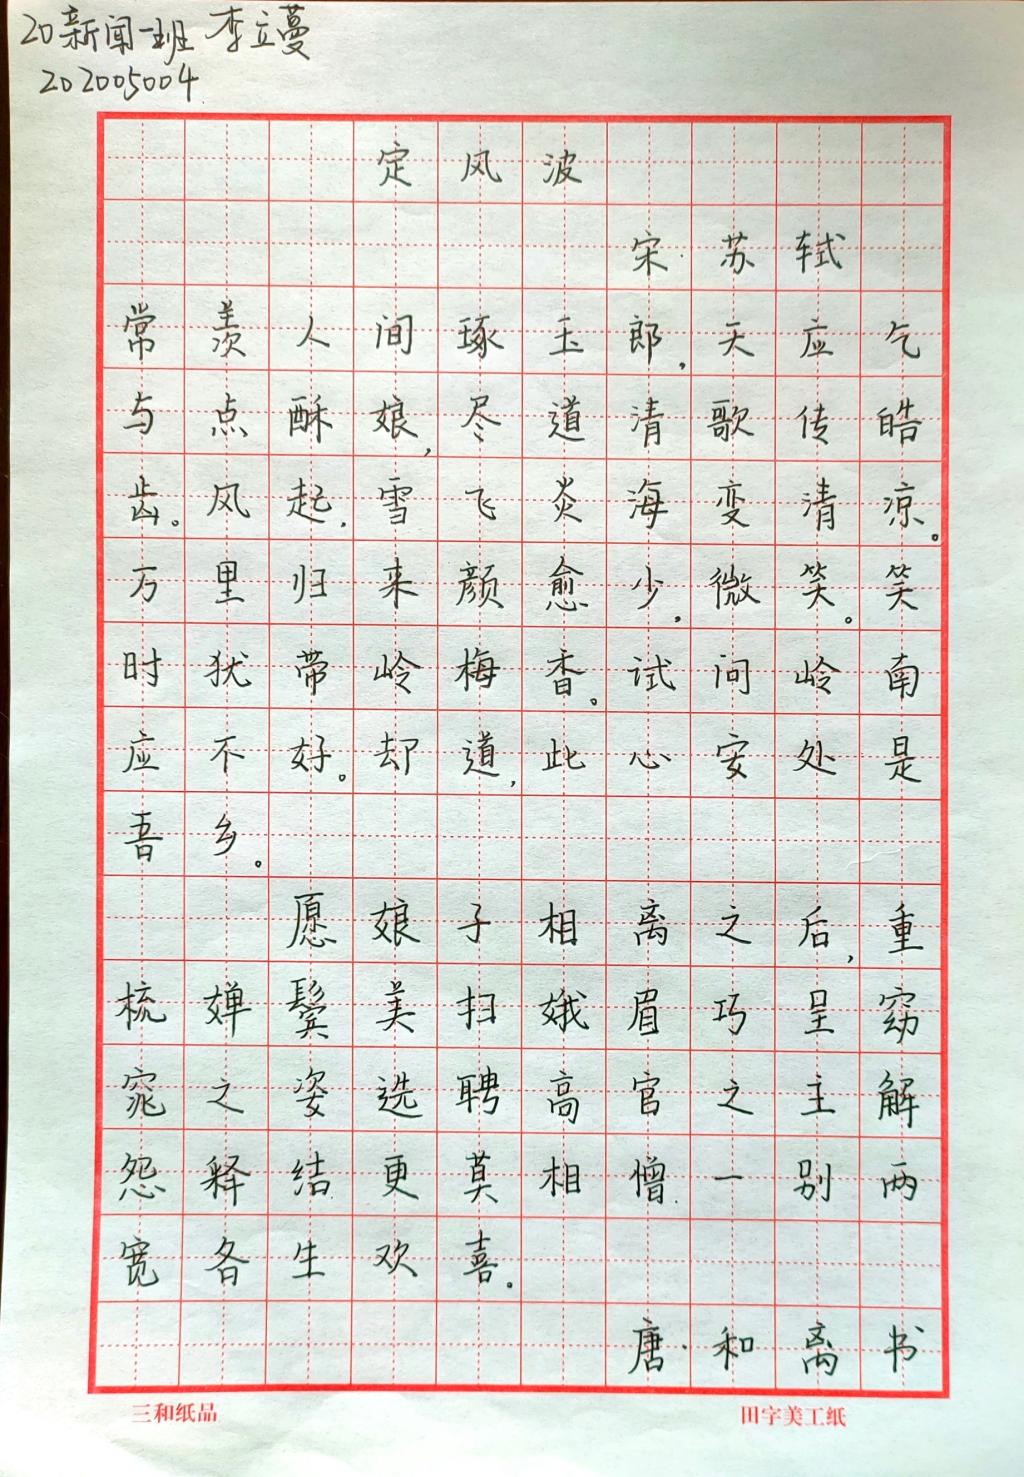 20新闻一班 李立蔓
202005004
定风波
宋·苏轼
常羡人间琢玉郎,天应乞
与点酥娘,尽道清歌传皓
齿。风起,雪飞炎海变清凉。
万里归来颜愈少,微笑。笑
时犹带岭梅香。试问岭南
应不好。却道,此心安处是
吾乡。
愿娘子相离之后,重
梳婵鬓美扫娥眉巧呈窈
窕之姿选聘高官之主解
怨释结更莫相憎一别两
宽各生欢喜。
唐·和离书
三和纸品 田字美工纸